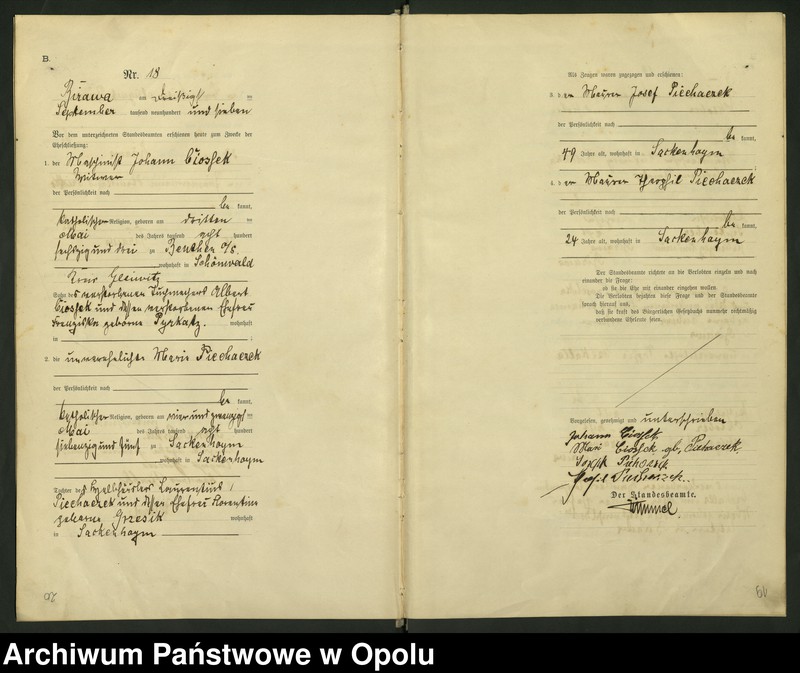 B.
Nr. 18
Birawa am dreißigsten
September tausend neunhundert und sieben
Vor dem unterzeichneten Standesbeamten erschienen heute zum Zwecke der
Eheschließung:
1. der Maschinist Johann Ciossek
Witwer
der Persönlichkeit nach
be kannt,
katholischer Religion, geboren am dritten
Mai des Jahres tausend acht hundert
sechszig und drei zu Beuthen O/S.
wohnhaft in Schönwald
Kreis Gleiwitz
Sohn des verstorbenen Tuchmachers Albert
Ciossek und dessen verstorbenen Ehefrau
Franziska geborne wohnhaft
in
2. die unverehelichte Marie Piechaczek
der Persönlichkeit nach
be kannt,
katholischer Religion, geboren am vier und zwanzigsten
Mai des Jahres tausend acht hundert
siebenzig und fünf zu Sackenhoym
wohnhaft in Sackenhoym
Tochter des Halbhäusler Laurentius
Piechaczek und dessen Ehefrau Florentine
geborne Grzesik wohnhaft
in Sackenhoym
20
Als Zeugen waren zugezogen und erschienen:
3. der Maurer Josef Piechaczek
der Persönlichkeit nach
be kannt,
49 Jahre alt, wohnhaft in Sackenhoym
4. der Maurer Theophil Piechaczek
der Persönlichkeit nach
be kannt,
24 Jahre alt, wohnhaft in Sackenhoym
Der Standesbeamte richtete an die Verlobten einzeln und nach
einander die Frage:
ob sie die Ehe mit einander eingehen wollen.
Die Verlobten bejahten diese Frage und der Standesbeamte
sprach hierauf aus,
daß sie kraft des Bürgerlichen Gesetzbuchs nunmehr rechtmäßig
verbundene Eheleute seien.
Vorgelesen, genehmigt und unterschrieben
Johann Ciossek
Marie Ciossek gb. Piechaczek
Josef Piechaczek
Piechaczek
Der Standesbeamte.
Archiwum Państwowe w Opolu